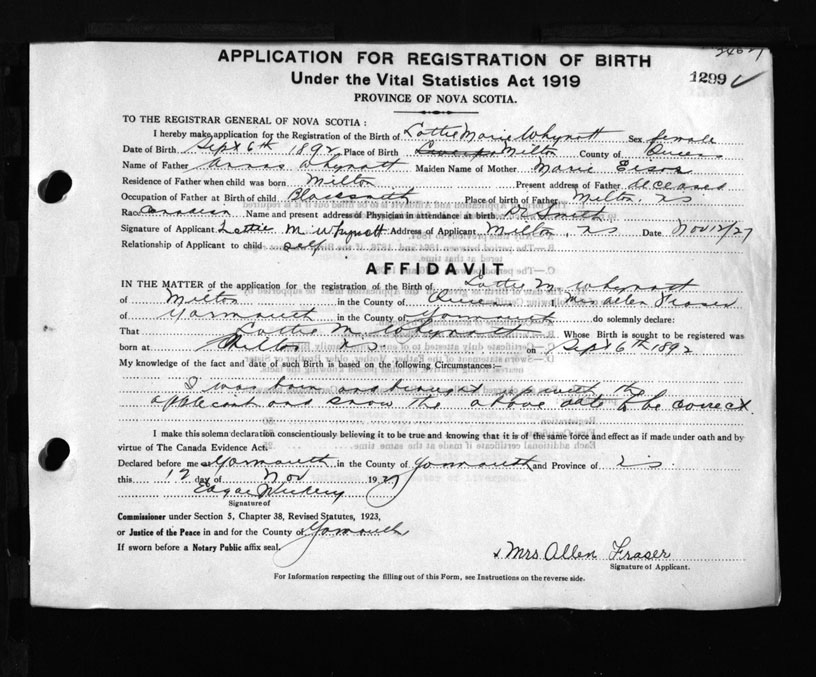 APPLICATION FOR REGISTRATION OF BIRTH
Under the Vital Statistics Act 1919
1299
PROVINCE OF NOVA SCOTIA.
TO THE REGISTRAR GENERAL OF NOVA SCOTIA:
I hereby make application for the Registration of the Birth of Lottie Marie Whynott Sex female
Date of Birth Sept 6th 1892 Place of Birth Milton County of Queens
Name of Father Whynott Maiden Name of Mother Marie
Residence of Father when child was born Milton Present address of Father
Occupation of Father at Birth of child Blacksmith Place of birth of Father Milton, NS
Race Canadian Name and present address of Physician in attendance at birth Dr Smith
Signature of Applicant Lottie M Whynott Address of Applicant Milton, NS Date Nov 12/27
Relationship of Applicant to child self
AFFIDAVIT
IN THE MATTER of the application for the registration of the Birth of Lottie M Whynott
of Milton in the County of Queens Mrs Allen Fraser
of Yarmouth in the County of Yarmouth do solemnly declare:
That Lottie M. Whynott Whose Birth is sought to be registered was
born at Milton NS on Sept 6th 1892
My knowledge of the fact and date of such Birth is based on the following Circumstances:—
I was born and brought up with the
applicant and know the above date to be correct
I make this solemn declaration conscientiously believing it to be true and knowing that it is of the same force and effect as if made under oath and by
virtue of The Canada Evidence Act.
Declared before me at Yarmouth in the County of Yarmouth and Province of NS
this 12 day of Nov 1927
Edgar
Signature of
Commissioner under Section 5, Chapter 38, Revised Statutes, 1923,
or Justice of the Peace in and for the County of Yarmouth
If sworn before a Notary Public affix seal.
x Mrs Allen Fraser
Signature of Applicant.
For Information respecting the filling out of this Form, see Instructions on the reverse side.